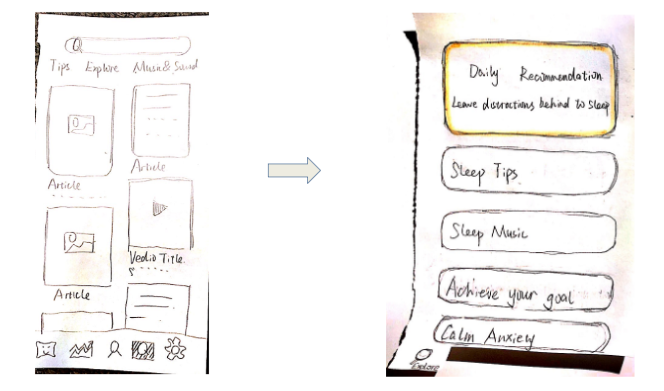 Tips Explore Music & Sound
Article
Article
Vedio Title
Article
Daily Recommendation
Leave distractions behind to sleep
Sleep Tips
Sleep Music
Achieve your goal
Calm Anxiety
Explore